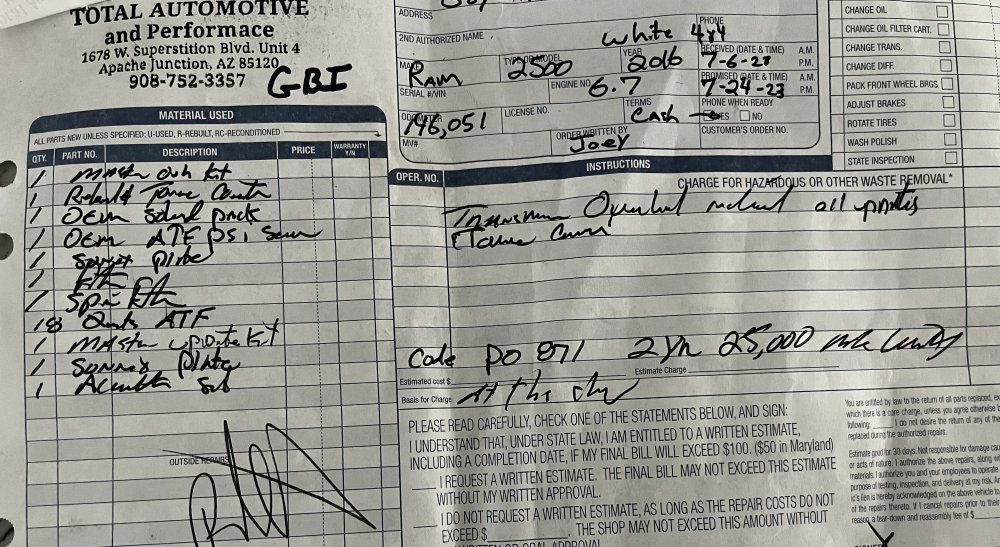 TOTAL AUTOMOTIVE
and Performace
1678 W. Superstition Blvd. Unit 4
Apache Junction, AZ 85120
908-752-3357
GBI
MATERIAL USED
ALL PARTS NEW UNLESS SPECIFIED: U-USED, R-REBUILT, RC-RECONDITIONED
QTY. PART NO. DESCRIPTION PRICE WARRANTY Y/N
1 Master kit
1
1 OEM pack
1 OEM ATF PSI
1 plate
1
1
18 Quarts ATF
1 Master update kit
1 plate
1
OUTSIDE REPAIRS
ADDRESS
2ND AUTHORIZED NAME
White 4x4
PHONE
MAKE
Ram
TYPE OR MODEL
2500
YEAR
2016
RECEIVED (DATE & TIME) A.M.
7-6-23 P.M.
SERIAL #/VIN
ENGINE NO.
6.7
PROMISED (DATE & TIME) A.M.
7-24-23 P.M.
ODOMETER
146,051
LICENSE NO.
TERMS
Cash
PHONE WHEN READY
YES NO
MV#
ORDER WRITTEN BY
Joey
CUSTOMER'S ORDER NO.
CHANGE OIL
CHANGE OIL FILTER CART.
CHANGE TRANS.
CHANGE DIFF.
PACK FRONT WHEEL BRGS
ADJUST BRAKES
ROTATE TIRES
WASH POLISH
STATE INSPECTION
OPER. NO. INSTRUCTIONS
CHARGE FOR HAZARDOUS OR OTHER WASTE REMOVAL*
all updates
Code PO 871 2 yr 25,000 mile
Estimated cost $ Estimate Charge
Basis for Charge At the
PLEASE READ CAREFULLY, CHECK ONE OF THE STATEMENTS BELOW, AND SIGN:
I UNDERSTAND THAT, UNDER STATE LAW, I AM ENTITLED TO A WRITTEN ESTIMATE,
INCLUDING A COMPLETION DATE, IF MY FINAL BILL WILL EXCEED $100. ($50 in Maryland)
I REQUEST A WRITTEN ESTIMATE. THE FINAL BILL MAY NOT EXCEED THIS ESTIMATE
WITHOUT MY WRITTEN APPROVAL.
I DO NOT REQUEST A WRITTEN ESTIMATE, AS LONG AS THE REPAIR COSTS DO NOT
EXCEED $ THE SHOP MAY NOT EXCEED THIS AMOUNT WITHOUT
WRITTEN OR ORAL APPROVAL
You are entitled by law to the return of all parts replaced,
which there is a core charge, unless you agree otherwise
following: I do not desire the return of any of the
replaced during the authorized repairs.
Estimate good for 30 days. Not responsible for damage
or acts of nature. I authorize the above repairs, along
materials. I authorize you and your employees to operate
purpose of testing, inspection, and delivery at my risk.
lien is hereby acknowledged on the above vehicle
of the repairs thereto. If I cancel repairs prior to their
reason, a tear-down and reassembly fee of $